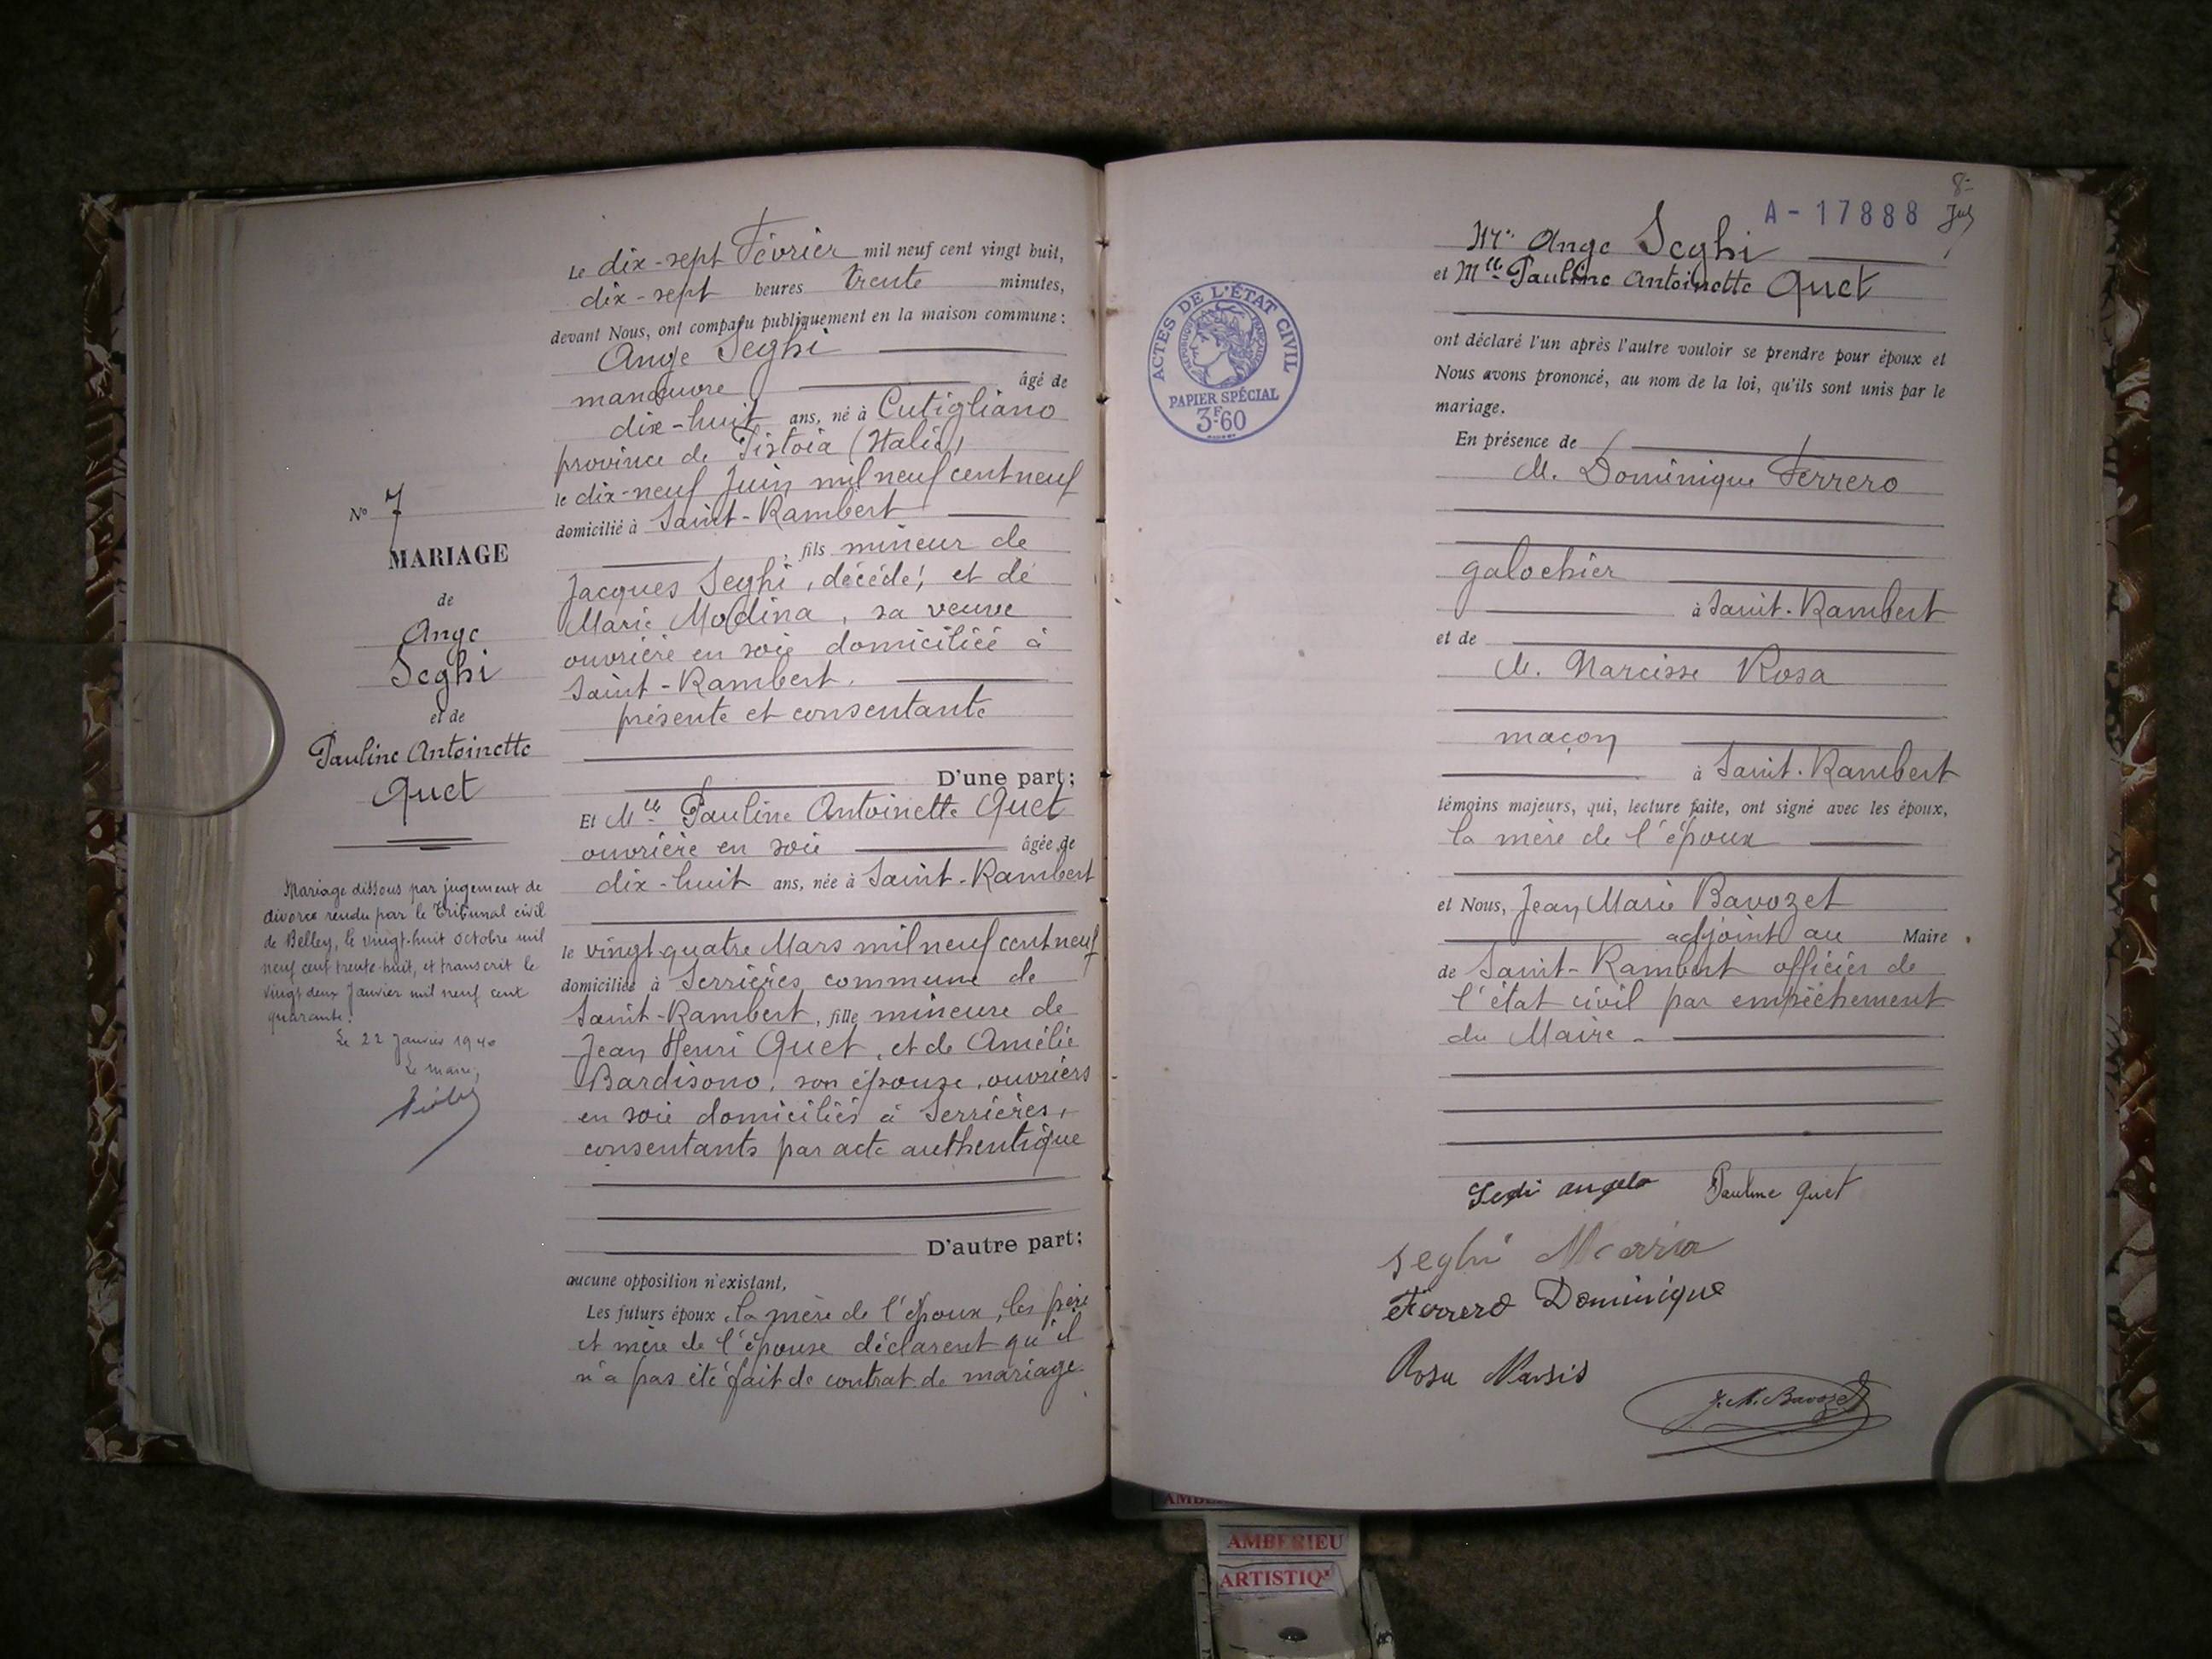 Le dix-sept Février mil neuf cent vingt huit,
dix-sept heures trente minutes,
devant Nous, ont comparu publiquement en la maison commune :
Ange Seghi
manœuvre âgé de
dix-huit ans, né à Cutigliano
province de Pistoia (Italie)
le dix-neuf Juin mil neuf cent neuf
domicilié à Saint-Rambert
, fils mineur de
Jacques Seghi, décédé, et de
Marie Modina, sa veuve
ouvrière en soie domiciliée à
Saint-Rambert.
présente et consentante
D'une part ;
Et Mlle Pauline Antoinette Quet
ouvrière en soie âgée de
dix-huit ans, née à Saint-Rambert
le vingt-quatre Mars mil neuf cent neuf
domiciliée à Serrières commune de
Saint-Rambert, fille mineure de
Jean Henri Quet, et de Amélie
Bardisono, son épouse, ouvriers
en soie domiciliés à Serrières,
consentants par acte authentique
D'autre part ;
aucune opposition n'existant,
Les futurs époux, la mère de l'époux, les père
et mère de l'épouse déclarent qu'il
n'a pas été fait de contrat de mariage
N° 7
MARIAGE
de
Ange
Seghi
et de
Pauline Antoinette
Quet
Mariage dissous par jugement de
divorce rendu par le Tribunal civil
de Belley, le vingt-huit octobre mil
neuf cent trente-huit, et transcrit le
vingt deux Janvier mil neuf cent
quarante.
Le 22 Janvier 1940
Le maire,
A-17888
8
ACTES DE L'ÉTAT CIVIL
RÉPUBLIQUE FRANÇAISE
PAPIER SPÉCIAL
3F60
Mr. Ange Seghi
et Mlle Pauline Antoinette Quet
ont déclaré l'un après l'autre vouloir se prendre pour époux et
Nous avons prononcé, au nom de la loi, qu'ils sont unis par le
mariage.
En présence de
M. Dominique Ferrero
galochier
à Saint-Rambert
et de
M. Narcisse Rosa
maçon
à Saint-Rambert
témoins majeurs, qui, lecture faite, ont signé avec les époux,
la mère de l'époux
et Nous, Jean Marie Bavozet
adjoint au Maire
de Saint-Rambert officier de
l'état civil par empêchement
du Maire.
angelo Pauline Quet
Seghi Maria
Ferrero Dominique
Rosa Narsis
J. M. Bavozet
AMBERIEU
ARTISTIQ